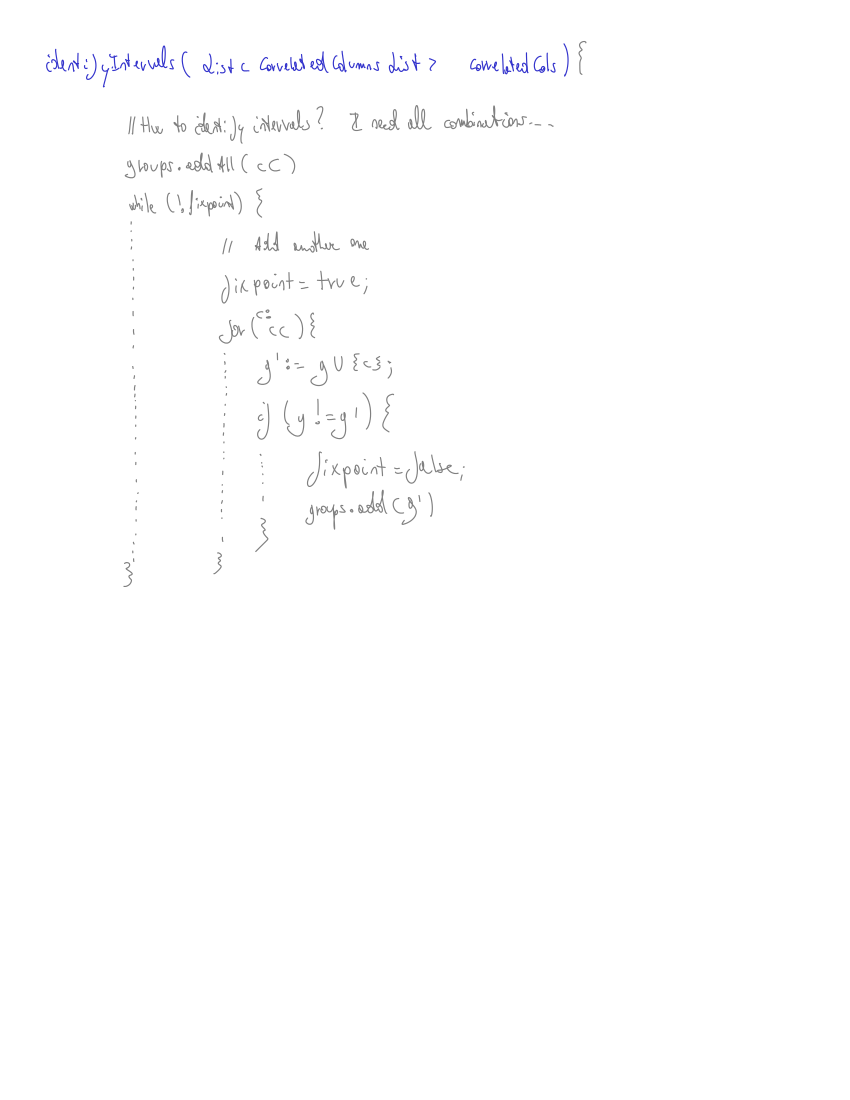 identifyIntervals( List < CorrelatedColumns List > correlatedCols) {
// How to identify intervals? I need all combinations...
groups.addAll( cC)
while (!fixpoint) {
// Add another one
fixpoint = true;
for( c: cc ) {
g' := g ∪ {c};
if (g != g') {
fixpoint = false;
groups.add(g')
}
}
}